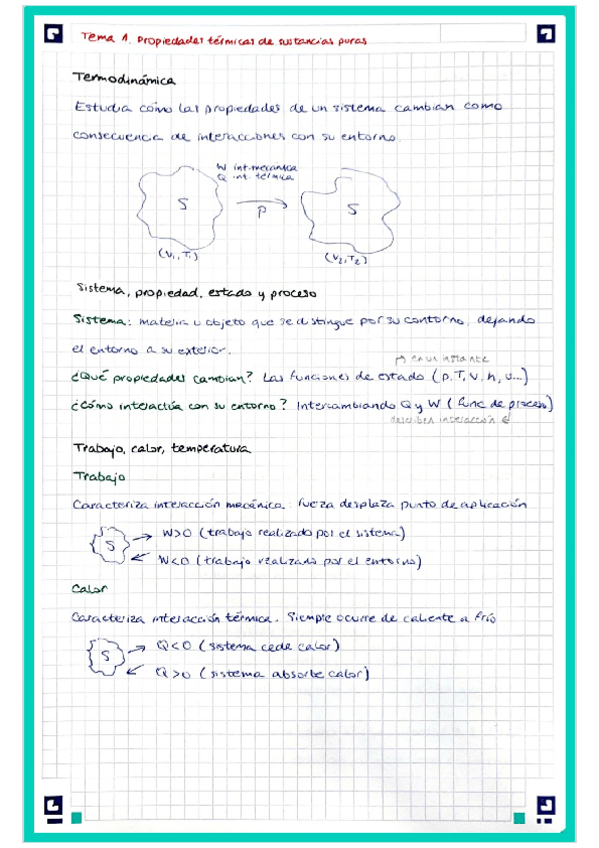 Tema 1. Propiedades térmicas de sustancias puras
Termodinámica
Estudia cómo las propiedades de un sistema cambian como
consecuencia de interacciones con su entorno.
W int. mecánica
Q int. térmica
S
P
S
(V₁, T₁)
(V₂, T₂)
Sistema, propiedad, estado y proceso
Sistema: materia u objeto que se distingue por su contorno, dejando
el entorno a su exterior.
en un instante
¿Qué propiedades cambian? Las funciones de estado (p, T, v, h, u...)
¿Cómo interactúa con su entorno? Intercambiando Q y W (func de proceso)
describen interacción
Trabajo, calor, temperatura
Trabajo
Caracteriza interacción mecánica: fuerza desplaza punto de aplicación
S
W>0 (trabajo realizado por el sistema)
W<0 (trabajo realizado por el entorno)
Calor
Caracteriza interacción térmica. Siempre ocurre de caliente a frío
S
Q<0 (sistema cede calor)
Q>0 (sistema absorbe calor)